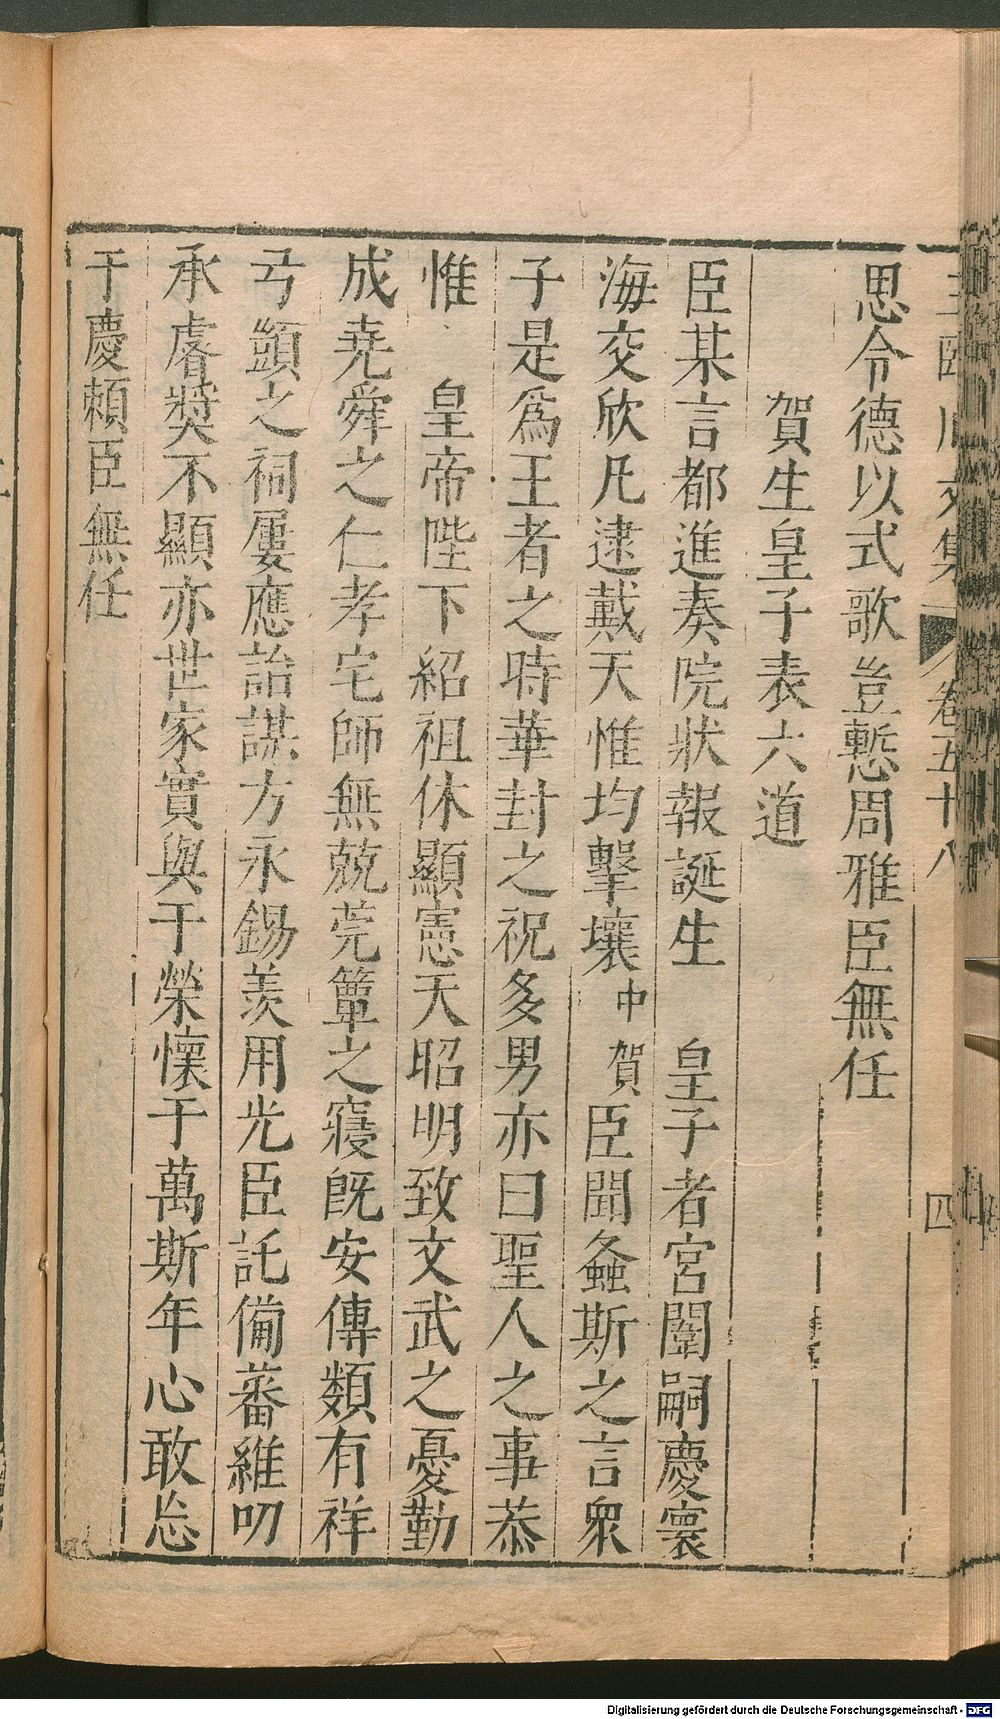 思令德以式歌豈慙周雅臣無任
賀生皇子表六道
臣某言都進奏院狀報誕生　皇子者宮闈嗣慶寰
海交欣凡逮戴天惟均擊壤中賀臣聞螽斯之言衆
子是爲王者之時華封之祝多男亦曰聖人之事恭
惟　皇帝陛下紹祖休顯憲天昭明致文武之憂勤
成堯舜之仁孝宅師無兢莞簟之寢旣安傳類有祥
弓韣之祠屢應詒謀方永錫羨用光臣託備蕃維叨
承睿奬不顯亦世家實與于榮懷于萬斯年心敢忘
于慶頼臣無任
文集　卷五十八　四
Digitalisierung gefördert durch die Deutsche Forschungsgemeinschaft - DFG